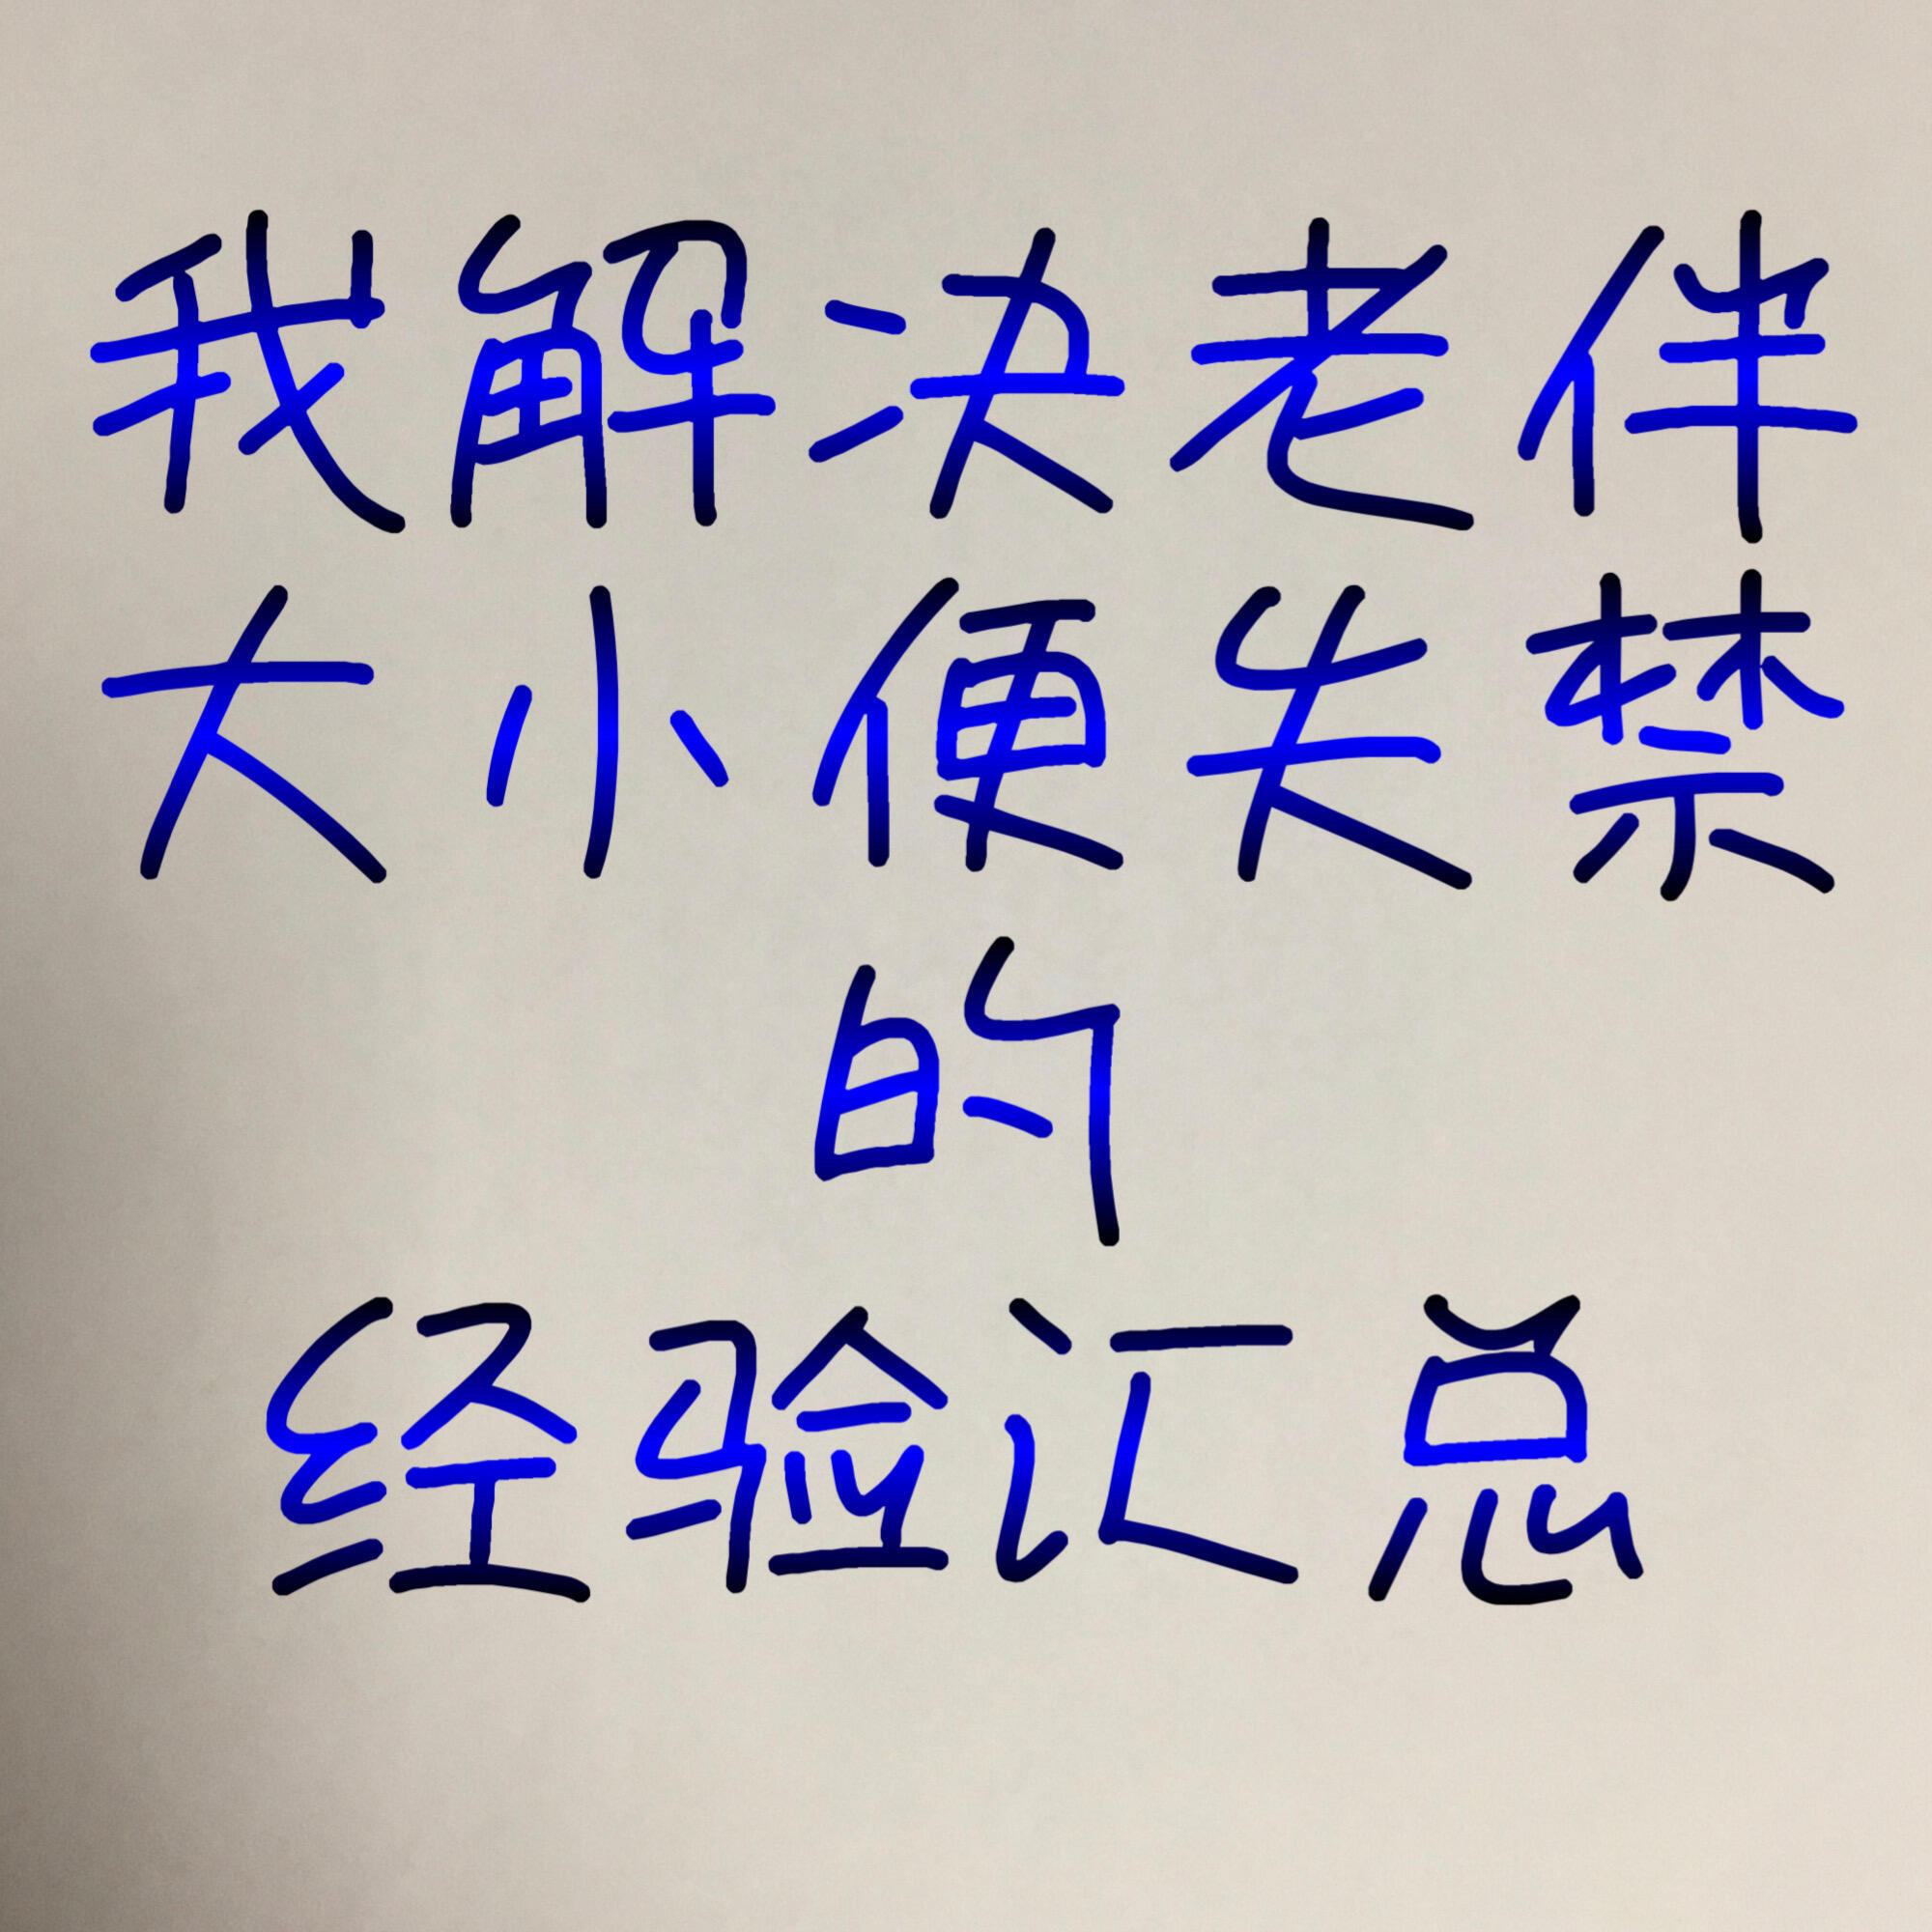 我解决老伴
大小便失禁
的
经验汇总